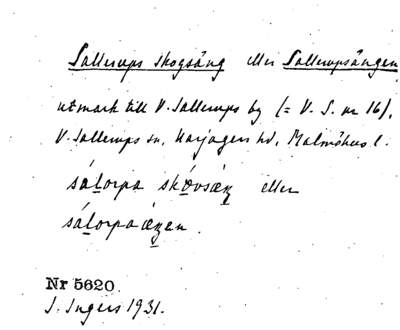 Sallerups skogsäng eller Sallerupsängen
utmark till V. Sallerups by (= V. S. nr 16),
V. Sallerups sn, Harjagers hd, Malmöhus l.
sálorpa skóvsæŋ eller
sálorpaæŋen.
Nr 5620.
I. Ingers 1931.